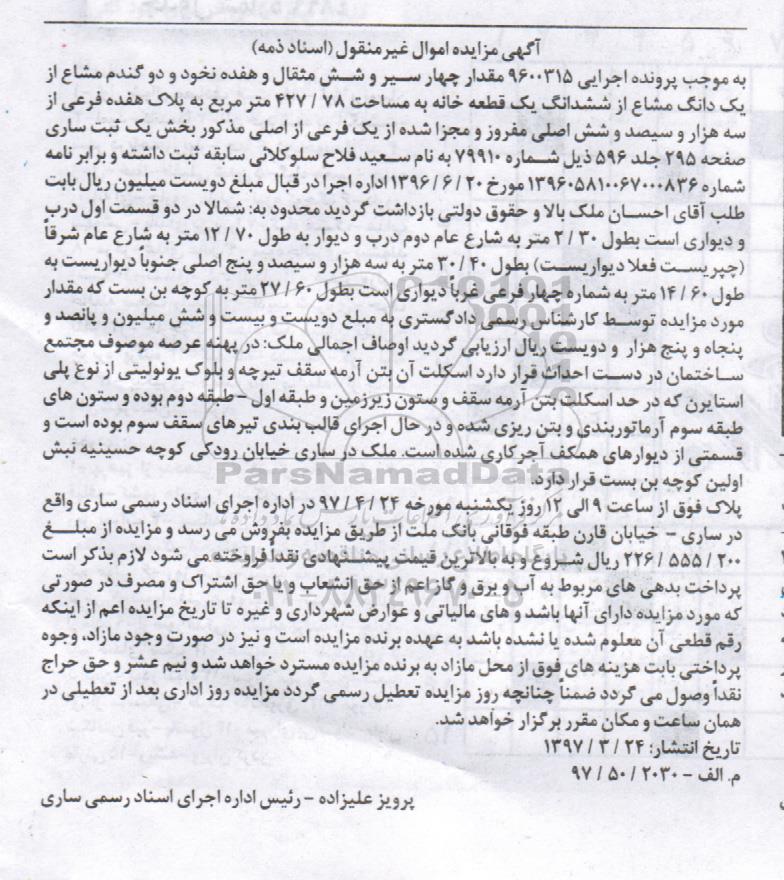 آگهی مزایده اموال غیرمنقول (اسناد ذمه)
به موجب پرونده اجرایی ۹۶۰۰۳۱۵ مقدار چهار سیر و شش مثقال و هفده نخود و دو گندم مشاع از
یک دانگ مشاع از ششدانگ یک قطعه خانه به مساحت ۷۸ / ۴۲۷ متر مربع به پلاک هفده فرعی از
سه هزار و سیصد و شش اصلی مفروز و مجزا شده از یک فرعی از اصلی مذکور بخش یک ثبت ساری
صفحه ۲۹۵ جلد ۵۹۶ ذیل شماره ۷۹۹۱۰ به نام سعید فلاح سلوکلائی سابقه ثبت داشته و برابر نامه
شماره ۱۳۹۶۰۵۸۱۰۰۶۷۰۰۰۸۳۶ مورخ ۲۰ / ۶ / ۱۳۹۶ اداره اجرا در قبال مبلغ دویست میلیون ریال بابت
طلب آقای احسان ملک بالا و حقوق دولتی بازداشت گردید محدود به: شمالا در دو قسمت اول درب
و دیواری است بطول ۳۰ / ۲ متر به شارع عام دوم درب و دیوار به طول ۷۰ / ۱۲ متر به شارع عام شرقاً
(چپریست فعلا دیواریست) بطول ۴۰ / ۳۰ متر به سه هزار و سیصد و پنج اصلی جنوباً دیواریست به
طول ۶۰ / ۱۴ متر به شماره چهار فرعی غرباً دیواری است بطول ۶۰ / ۲۷ متر به کوچه بن بست که مقدار
مورد مزایده توسط کارشناس رسمی دادگستری به مبلغ دویست و بیست و شش میلیون و پانصد و
پنجاه و پنج هزار و دویست ریال ارزیابی گردید اوصاف اجمالی ملک: در پهنه عرصه موصوف مجتمع
ساختمان در دست احداث قرار دارد اسکلت آن بتن آرمه سقف تیرچه و بلوک یونولیتی از نوع پلی
استایرن که در حد اسکلت بتن آرمه سقف و ستون زیرزمین و طبقه اول – طبقه دوم بوده و ستون های
طبقه سوم آرماتوربندی و بتن ریزی شده و در حال اجرای قالب بندی تیرهای سقف سوم بوده است و
قسمتی از دیوارهای همکف آجرکاری شده است. ملک در ساری خیابان رودکی کوچه حسینیه نبش
اولین کوچه بن بست قرار دارد.
پلاک فوق از ساعت ۹ الی ۱۲ روز یکشنبه مورخه ۲۴ / ۴ / ۹۷ در اداره اجرای اسناد رسمی ساری واقع
در ساری – خیابان قارن طبقه فوقانی بانک ملت از طریق مزایده بفروش می رسد و مزایده از مبلغ
۲۰۰ / ۵۵۵ / ۲۲۶ ریال شروع و به بالاترین قیمت پیشنهادی نقداً فروخته می شود لازم بذکر است
پرداخت بدهی های مربوط به آب و برق و گاز اعم از حق انشعاب و یا حق اشتراک و مصرف در صورتی
که مورد مزایده دارای آنها باشد و های مالیاتی و عوارض شهرداری و غیره تا تاریخ مزایده اعم از اینکه
رقم قطعی آن معلوم شده یا نشده باشد به عهده برنده مزایده است و نیز در صورت وجود مازاد، وجوه
پرداختی بابت هزینه های فوق از محل مازاد به برنده مزایده مسترد خواهد شد و نیم عشر و حق حراج
نقداً وصول می گردد ضمناً چنانچه روز مزایده تعطیل رسمی گردد مزایده روز اداری بعد از تعطیلی در
همان ساعت و مکان مقرر برگزار خواهد شد.
تاریخ انتشار: ۲۴ / ۳ / ۱۳۹۷
م. الف – ۲۰۳۰ / ۵۰ / ۹۷
پرویز علیزاده – رئیس اداره اجرای اسناد رسمی ساری
ParsNamadData